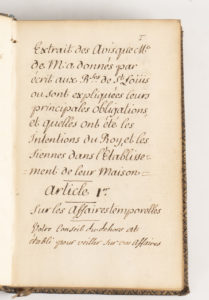 Extrait des Avis que Me
de M. a donnés par
écrit aux Rses de St Loüis
ou sont expliquées leurs
principales obligations,
et quelles ont été les
Intentions du Roy, et les
siennes dans l'Etablisse-
ment de leur Maison
Article 1er
Sur les Affaires temporelles
Votre Conseil du dehors est
établi pour veiller sur vos Affaires